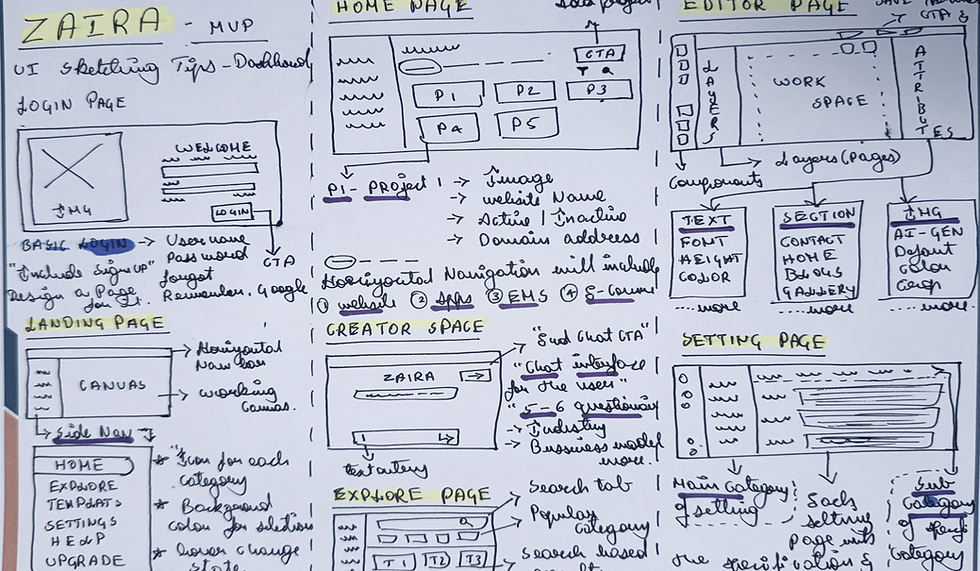 ZAIRA - MVP
UI Sketching Tips - Dashboard
LOGIN PAGE
WELCOME
IMG
LOGIN
BASIC LOGIN → Username
Password
forgot
Remember. Google
CTA
"Include Sign up"
Design a Page
for it.
LANDING PAGE
CANVAS
Horizontal
Nav bar
Working
Canvas.
Side Nav
HOME
EXPLORE
TEMPLATS
SETTINGS
HELP
UPGRADE
* Icon for each
category
* Background
color for selection
* hover change
state
HOME PAGE
Add project
CTA
P1
P2
P3
P4
P5
P1 - PROJECT 1 → Image
→ website Name
→ Active / Inactive
→ Domain address
Horizontal Navigation will include
① website ② Apps ③ EMS ④ E-Comm
CREATOR SPACE
ZAIRA
"Chat interface
for the user"
"5-6 questioning
→ Industry
→ Bussiness model
more.
EXPLORE PAGE
T1
T2
T3
→ Search tab
→ Popular
category
→ Search based
EDITOR PAGE
CTA &
LAYERS
WORK
SPACE
ATTRIBUTES
Components
Layers (Pages)
TEXT
FONT
HEIGHT
COLOR
....more
SECTION
CONTACT
HOME
BLOGS
GALLERY
....more
IMG
AI-GEN
Defout
Color
Crop
....more
SETTING PAGE
Main Category
of setting
Each
setting
page with
the specification &
Sub
Category
of
Category